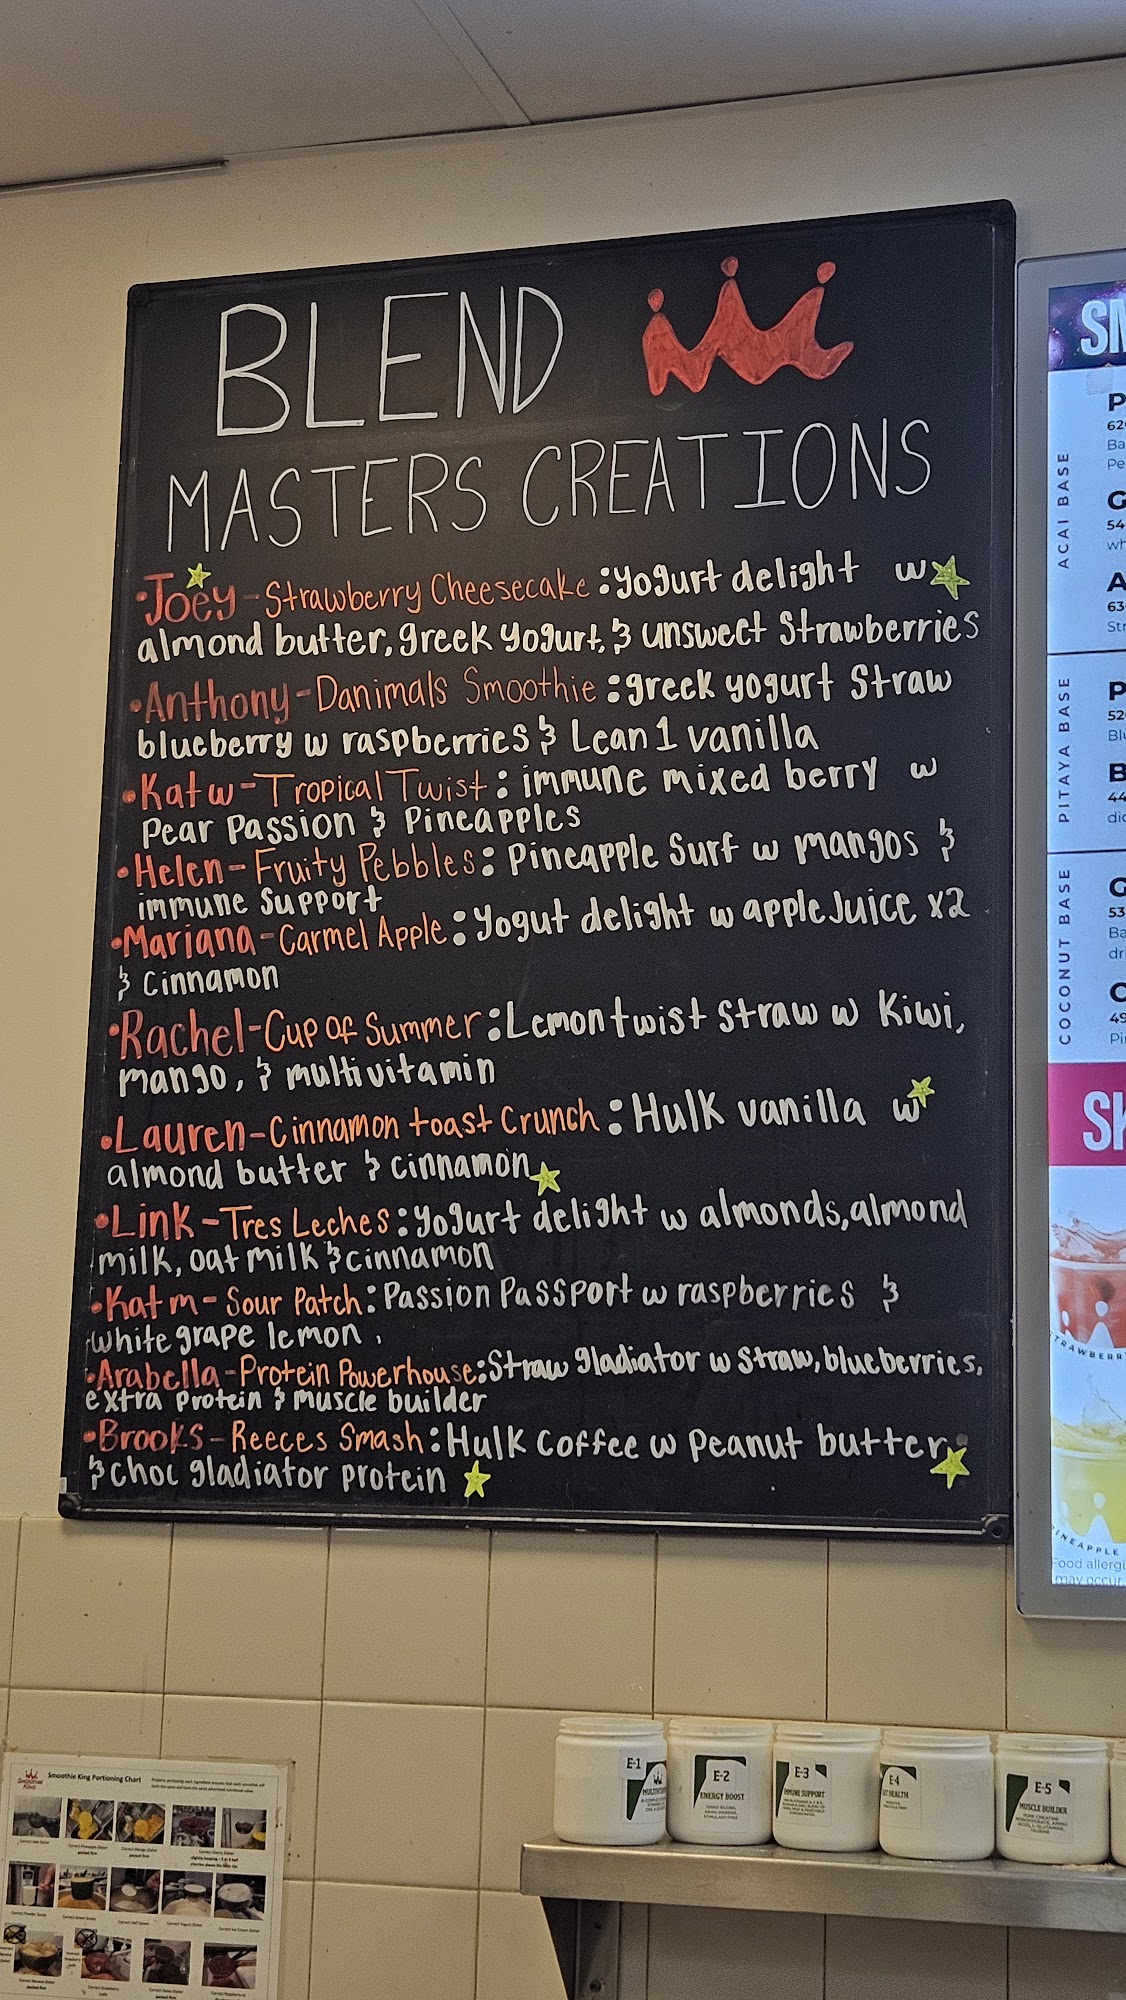 BLEND
MASTERS CREATIONS
•Joey-Strawberry Cheesecake:yogurt delight w
almond butter, greek yogurt, & unsweet strawberries
•Anthony-Danimals Smoothie:greek yogurt Straw
blueberry w raspberries & Lean1 vanilla
•Kat w-Tropical Twist: immune mixed berry w
Pear Passion & Pineapples
•Helen-Fruity Pebbles: Pineapple Surf w mangos &
immune Support
•Mariana-Carmel Apple: Yogut delight w apple Juice x2
& cinnamon
•Rachel-Cup of Summer:Lemon twist Straw w Kiwi,
mango, & multivitamin
•Lauren-Cinnamon toast Crunch:Hulk vanilla w
almond butter & cinnamon
•Link-Tres Leches:yogurt delight w almonds,almond
milk, oat milk & cinnamon
•Kat m-Sour Patch:Passion Passport w raspberries &
white grape lemon
•Arabella-Protein Powerhouse:Straw gladiator w Straw, blueberries,
extra protein & muscle builder
•Brooks-Reeces Smash:Hulk Coffee w Peanut butter
& choc gladiator protein
ACAI BASE
PITAYA BASE
COCONUT BASE
PINEAPPLE
Food allergi
may occur
E-1
E-2
ENERGY BOOST
E-3
IMMUNE SUPPORT
E-4
HEALTH
E-5
MUSCLE BUILDER
SMOOTHIE KING
Smoothie King Portioning Chart